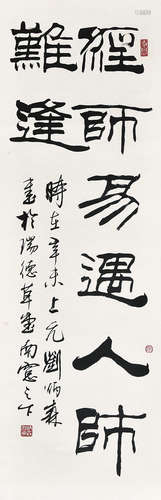 經師易遇人師
難逢
時在辛未上元劉炳森
書於瑞德草堂南窗之下